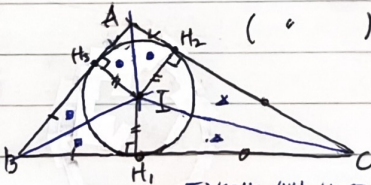 A
( " )
H₃
H₂
I
B
H₁
C